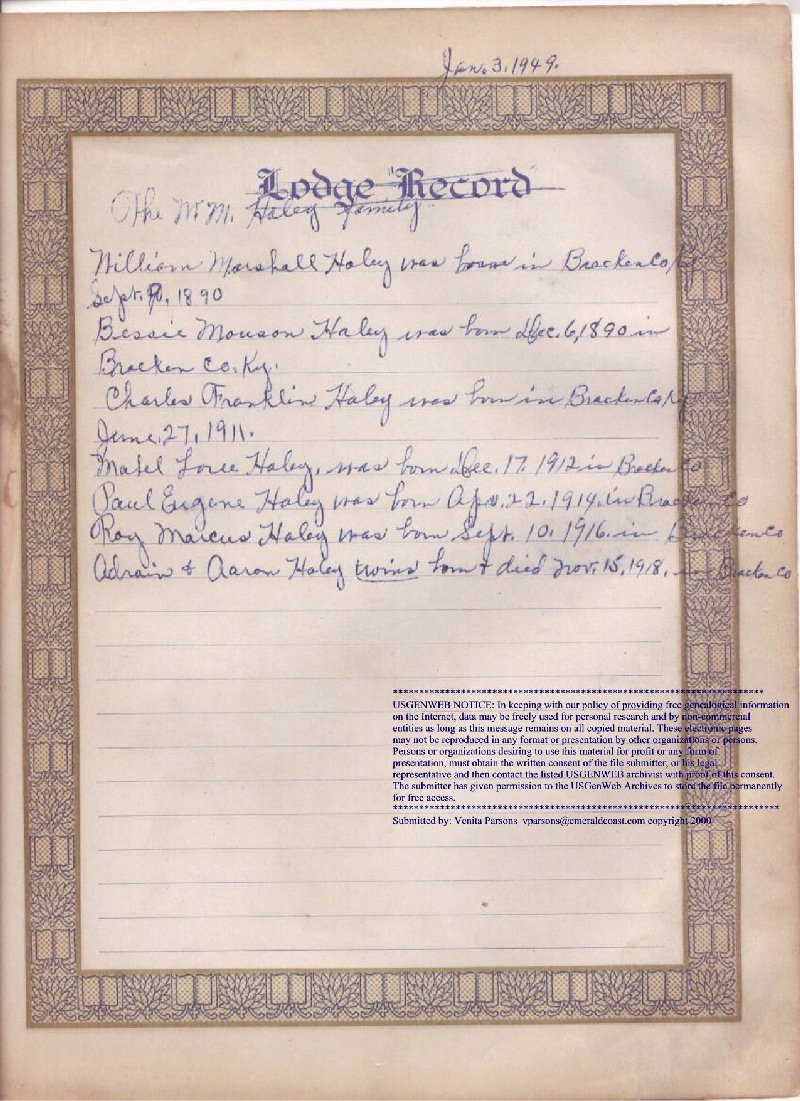 Jan. 3. 1949.
Lodge Record
The W. M. Haley Family
William Marshall Haley was born in Bracken Co, Ky
Sept. 9, 1890
Bessie Monson Haley was born Dec. 6, 1890 in
Bracken Co. Ky.
Charles Franklin Haley was born in Bracken Co, Ky
June, 27, 1911.
Mabel Loree Haley, was born Dec. 17. 1912 in Bracken Co
Paul Eugene Haley was born Apr. 22. 1914. in Bracken Co
Roy Marcus Haley was born Sept. 10. 1916. in Bracken Co
Adrain & Aaron Haley twins born & died Nov. 15, 1918, in Bracken Co
************************************************************************
USGENWEB NOTICE: In keeping with our policy of providing free genealogical information
on the Internet, data may be freely used for personal research and by non-commercial
entities as long as this message remains on all copied material. These electronic pages
may not be reproduced in any format or presentation by other organizations or persons.
Persons or organizations desiring to use this material for profit or any form of
presentation, must obtain the written consent of the file submitter, or his legal
representative and then contact the listed USGENWEB archivist with proof of this consent.
The submitter has given permission to the USGenWeb Archives to store the file permanently
for free access.
***************************************************************************
Submitted by: Venita Parsons vparsons@emeraldcoast.com copyright 2000